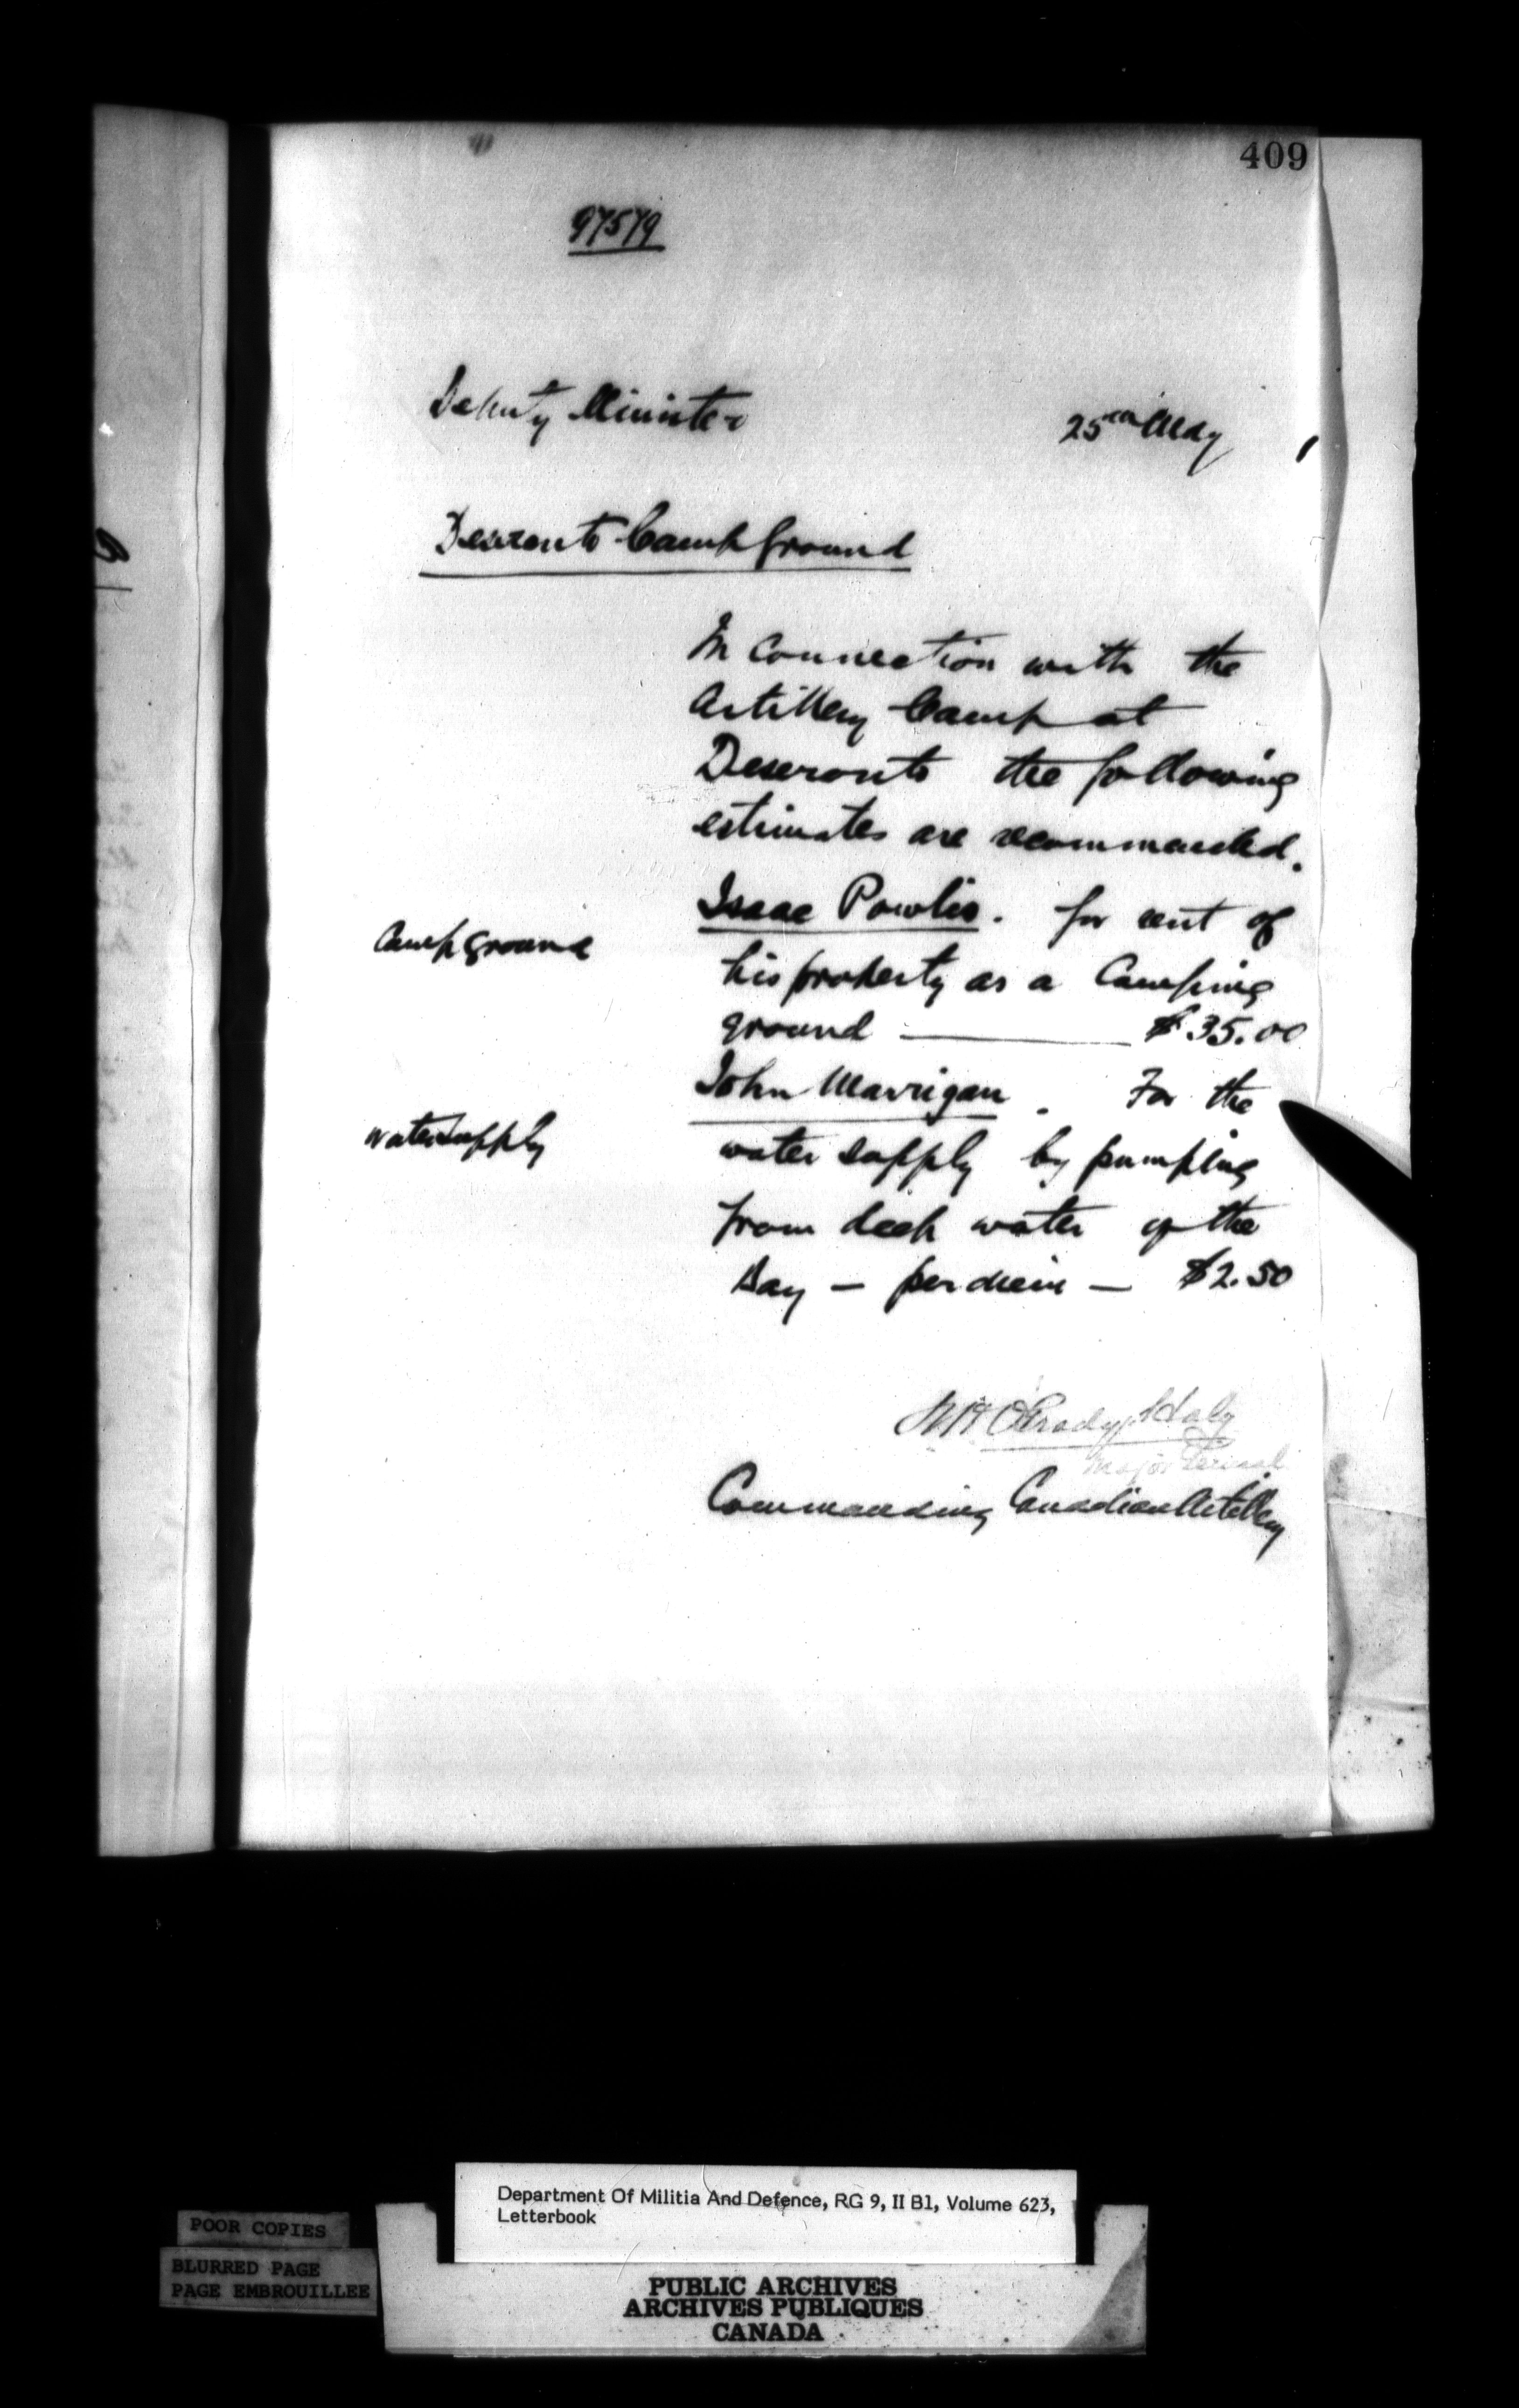 409
97579
Deputy Minister
25th May
Deseronto Camp Ground
In connection with the
Artillery Camp at
Deseronto the following
estimates are recommended.
Camp ground
Isaac Powlis. for rent of
his property as a Camping
ground — $35.00
John Marrigan. For the
water supply
water supply by pumping
from deep water of the
Bay — per diem — $2.50
O'Grady Haly
Major General
Commanding Canadian Artillery
Department Of Militia And Defence, RG 9, II B1, Volume 623,
Letterbook
POOR COPIES
BLURRED PAGE
PAGE EMBROUILLEE
PUBLIC ARCHIVES
ARCHIVES PUBLIQUES
CANADA